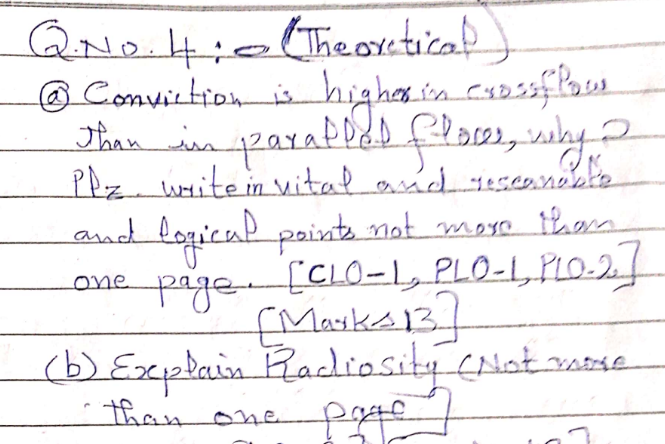 Q.No.4:- (Theoretical)
(a) Conviction is higher in crossflow
than in parallel flows, why?
Plz. write in vital and
and logical points not more than
one page. [CLO-1, PLO-1, PLO-2.]
[Marks 13]
(b) Explain Radiosity (Not more
than one page]